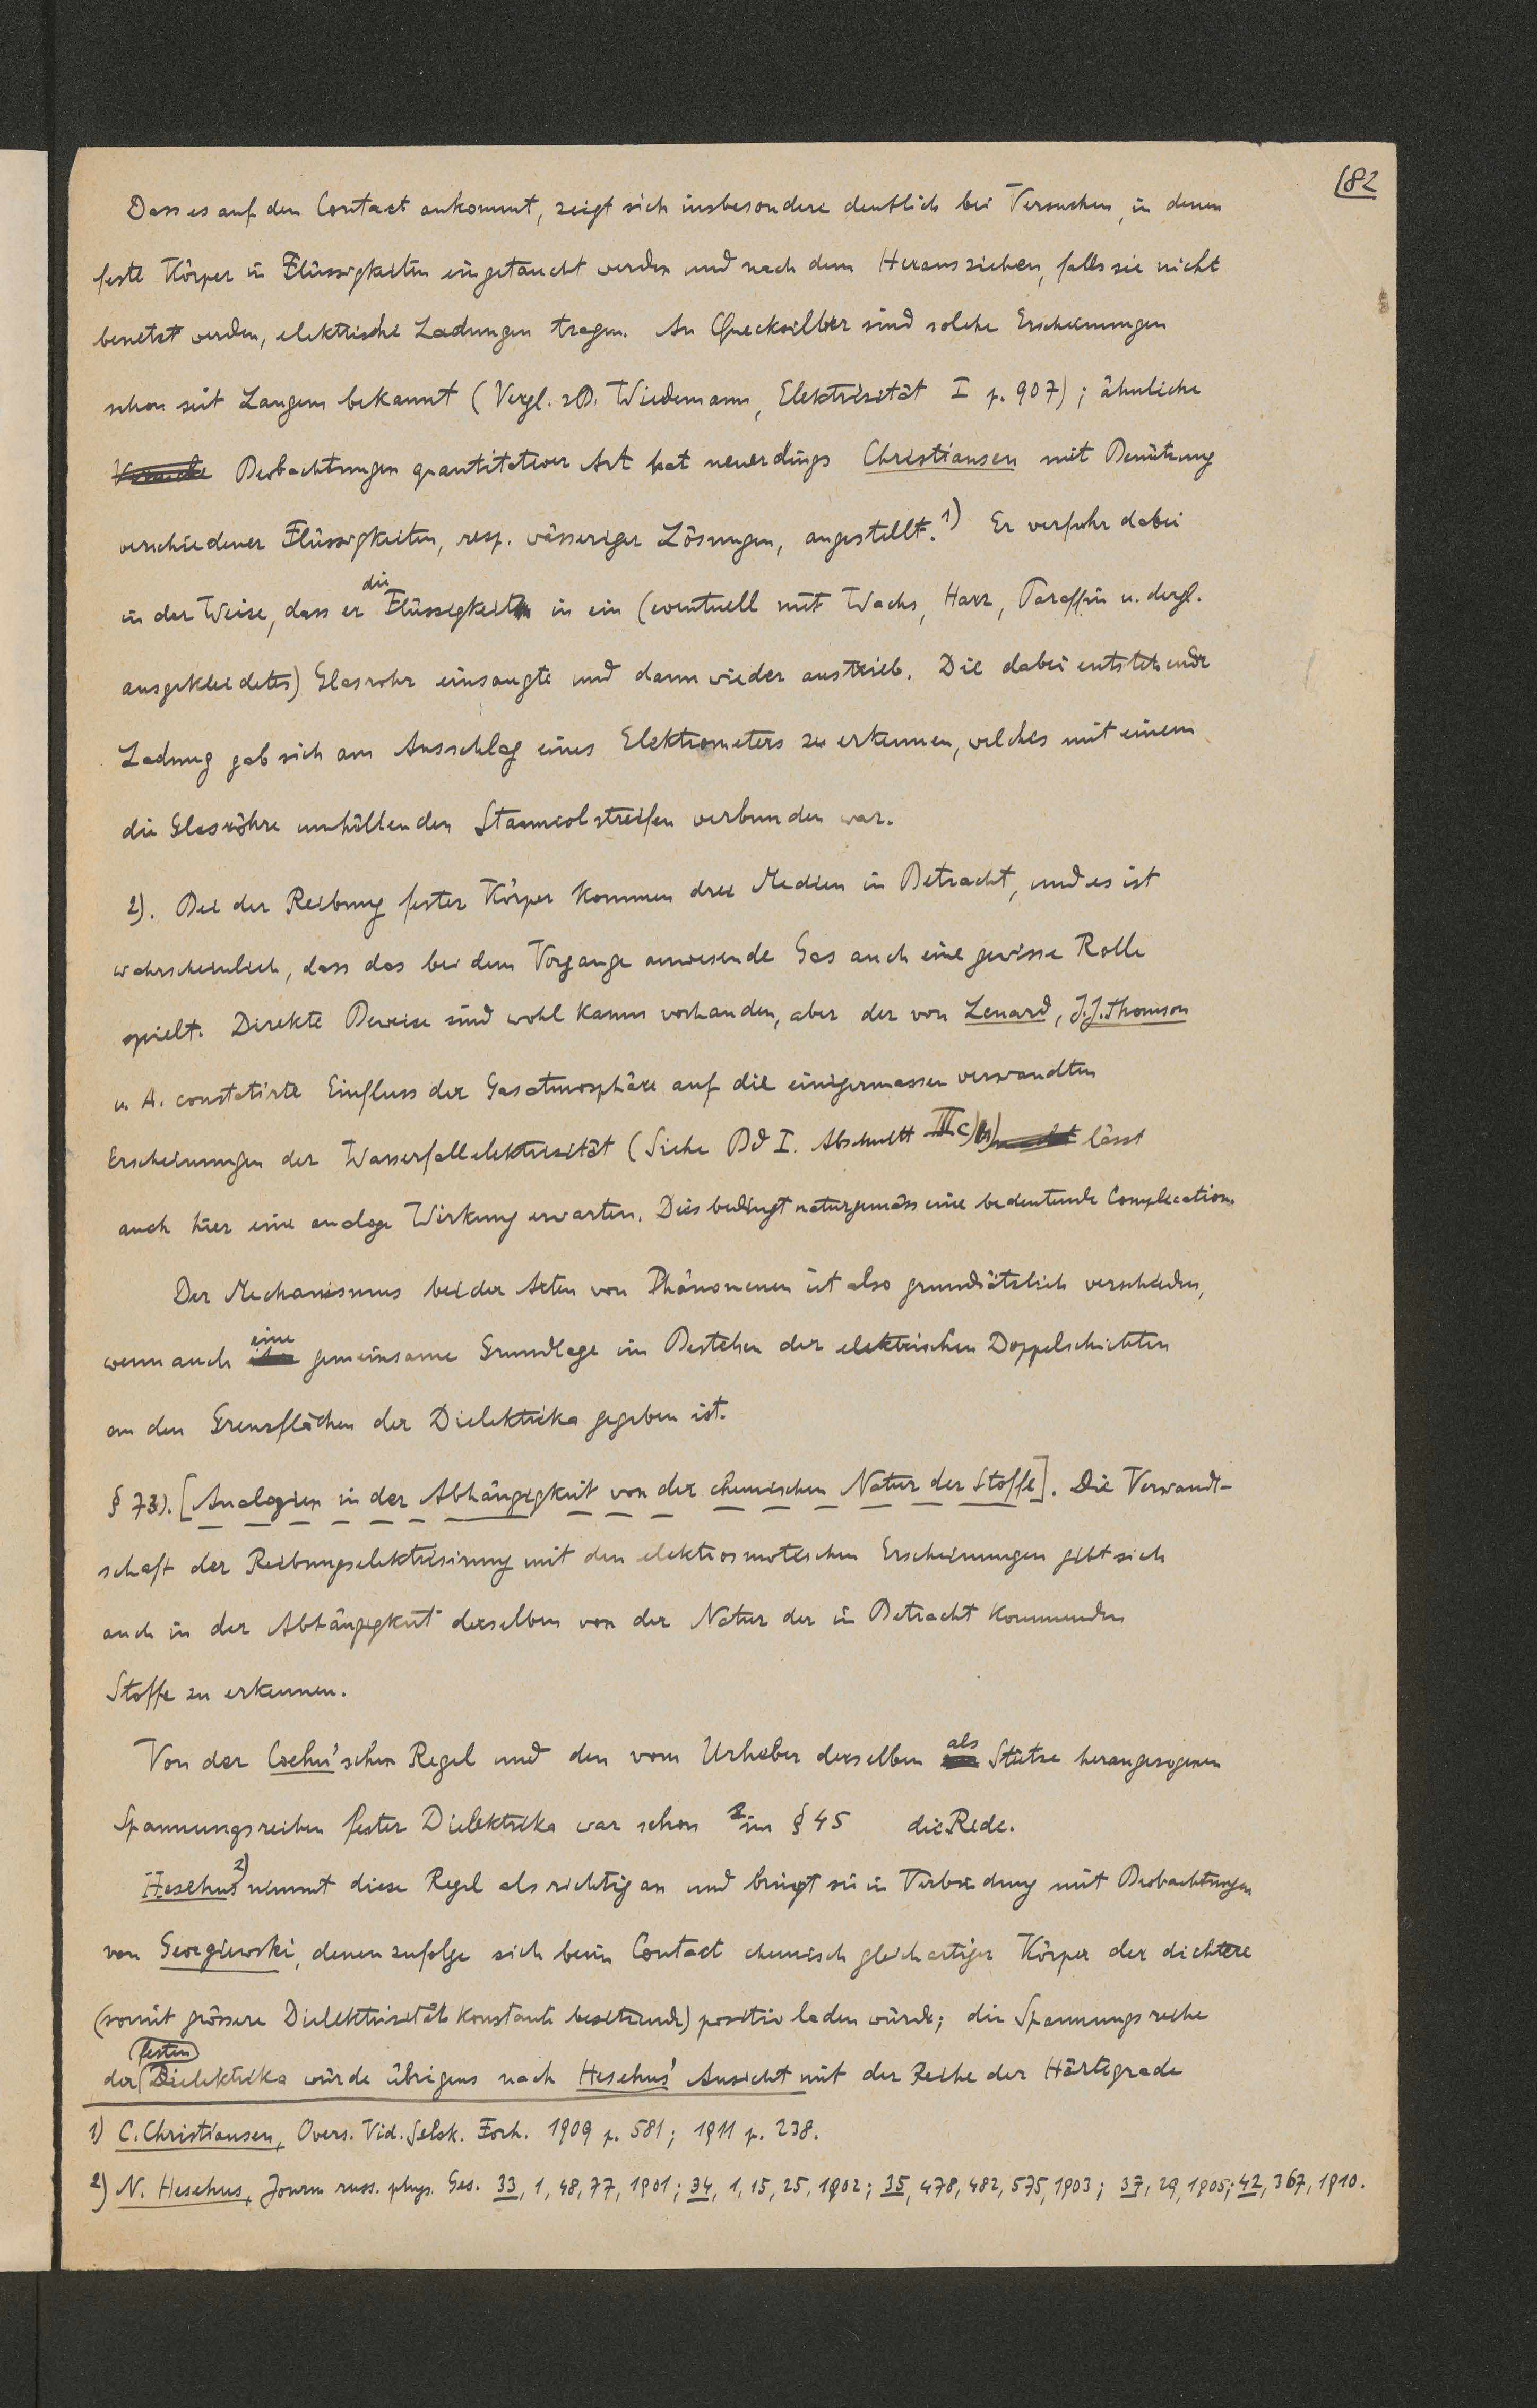 82
Dass es auf den Contact ankommt, zeigt sich insbesondere deutlich bei Versuchen, in denen
feste Körper in Flüssigkeiten eingetaucht werden und nach dem Herausziehen, falls sie nicht
benetzt werden, elektrische Ladungen tragen. An Quecksilber sind solche Erscheinungen
schon seit Langem bekannt (Vergl. zB. Wiedemann, Elektrizität I p. 907); ähnliche
Versuche Beobachtungen quantitativer Art hat neuerdings Christiansen mit Benützung
verschiedener Flüssigkeiten, resp. wässeriger Lösungen, angestellt.1) Er verfuhr dabei
in der Weise, dass er die Flüssigkeit in ein (eventuell mit Wachs, Harz, Paraffin u. dergl.
ausgekleidetes) Glasrohr einsaugte und dann wieder austrieb. Die dabei entstehende
Ladung gab sich am Ausschlag eines Elektrometers zu erkennen, welches mit einem
die Glasröhre umhüllenden Stanniolstreifen verbunden war.
2). Bei der Reibung fester Körper kommen drei Medien in Betracht, und es ist
wahrscheinlich, dass das bei dem Vorgange anwesende Gas auch eine gewisse Rolle
spielt. Direkte Beweise sind wohl kaum vorhanden, aber der von Lenard, J.J. Thomson
u. A. constatirte Einfluss der Gasatmosphäre auf die einigermassen verwandten
Erscheinungen der Wasserfallelektrizität (Siehe Bd I. Abschnitt III c) lässt
auch hier eine analoge Wirkung erwarten. Dies bedingt naturgemäss eine bedeutende Complication.
Der Mechanismus beider Arten von Phänomenen ist also grundsätzlich verschieden,
wenn auch eine gemeinsame Grundlage im Bestehen der elektrischen Doppelschichten
an den Grenzflächen der Dielektrika gegeben ist.
§ 73). [Analogien in der Abhängigkeit von der chemischen Natur der Stoffe]. Die Verwandt-
schaft der Reibungselektrisirung mit den elektrosmotischen Erscheinungen gibt sich
auch in der Abhängigkeit derselben von der Natur der in Betracht kommenden
Stoffe zu erkennen.
Von der Coehn'schen Regel und den vom Urheber derselben als Stütze herangezogenen
Spannungsreihen fester Dielektrika war schon im § 45 die Rede.
Hesehus2) nimmt diese Regel als richtig an und bringt sie in Verbindung mit Beobachtungen
von Georgiewski, denen zufolge sich beim Contact chemisch gleichartiger Körper der dichtere
(somit grössere Dielektrizitätskonstante besitzende) positiv laden würde; die Spannungsreihe
der festen Dielektrika würde übrigens nach Hesehus' Ansicht mit der Reihe der Härtegrade
1) C. Christiansen, Overs. Vid. Selsk. Forh. 1909 p. 581; 1911 p. 238.
2) N. Hesehus, Journ russ. phys. Ges. 33, 1, 48, 77, 1901; 34, 1, 15, 25, 1902; 35, 478, 482, 575, 1903; 37, 29, 1905; 42, 367, 1910.